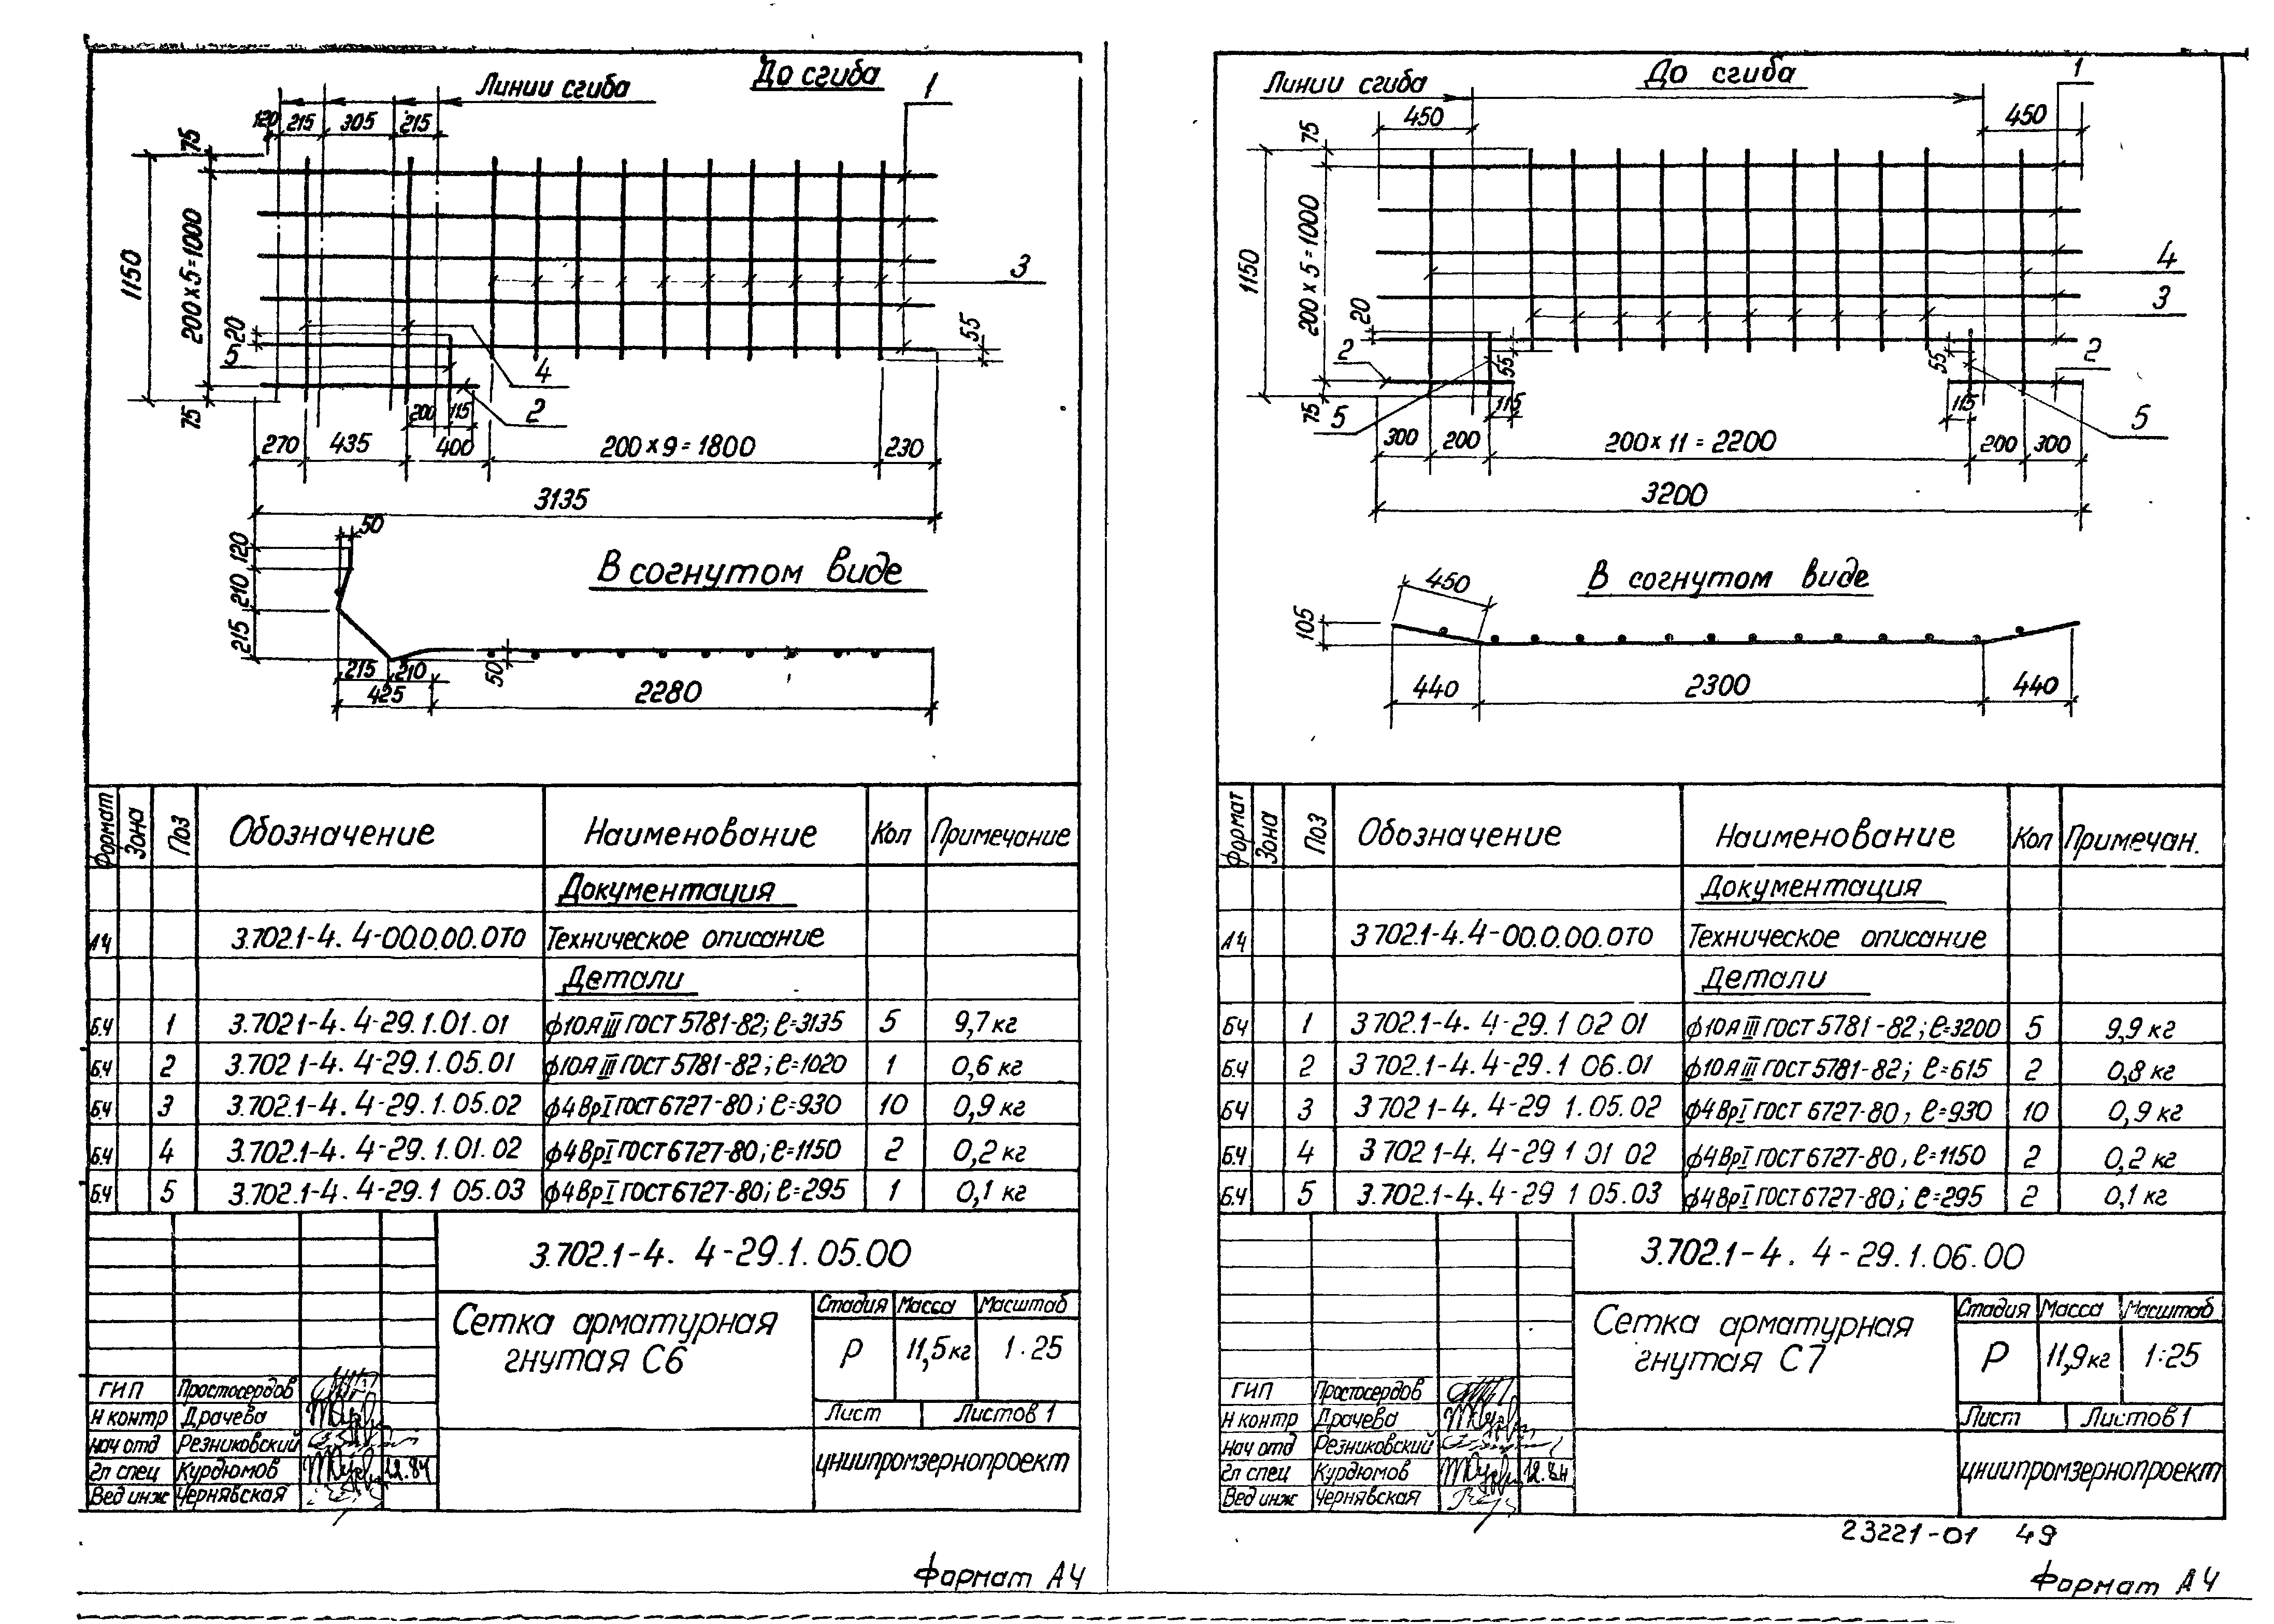 Линии сгиба
До сгиба
1
120 215 305 215
75
1150
200x5=1000
20
5
75
3
55
4
2
200 115
270 435 400 200x9=1800 230
3135
50
120
210
215
В согнутом виде
215 210
425
50
2280
Формат Зона Поз Обозначение Наименование Кол Примечание
Документация
А4 3.702.1-4. 4-00.0.00.0ТО Техническое описание
Детали
Б.Ч 1 3.7021-4. 4-29.1.01.01 ф10АIII ГОСТ 5781-82; ℓ=3135 5 9,7 кг
Б.Ч 2 3.702 1-4. 4-29.1.05.01 ф10АIII ГОСТ 5781-82; ℓ=1020 1 0,6 кг
Б.Ч 3 3.702.1-4. 4-29.1.05.02 ф4ВрI ГОСТ 6727-80; ℓ=930 10 0,9 кг
Б.Ч 4 3.702.1-4. 4-29.1.01.02 ф4ВрI ГОСТ 6727-80; ℓ=1150 2 0,2 кг
Б.Ч 5 3.702.1-4. 4-29.1 05.03 ф4ВрI ГОСТ 6727-80; ℓ=295 1 0,1 кг
3.702.1-4. 4-29.1.05.00
Сетка арматурная
гнутая С6
Стадия Масса Масштаб
Р 11,5кг 1.25
Лист Листов 1
ЦНИИПРОМЗЕРНОПРОЕКТ
ГИП Простосердов
Н контр Драчева
Нач отд Резниковский
Гл спец Курдюмов 12.84
Вед инж Чернявская
Формат А4
Линии сгиба
До сгиба
1
450 450
75
1150
200x5=1000
20
2
75
5
55
115
4
3
55
2
115
5
300 200 200x11=2200 200 300
3200
В согнутом виде
450
105
440 2300 440
Формат Зона Поз Обозначение Наименование Кол Примечан.
Документация
А4 3 702.1-4.4-00.0.00.0ТО Техническое описание
Детали
БЧ 1 3 702.1-4. 4-29.1 02 01 ф10АIII ГОСТ 5781-82; ℓ=3200 5 9,9 кг
Б.Ч 2 3 702.1-4. 4-29.1 06.01 ф10АIII ГОСТ 5781-82; ℓ=615 2 0,8 кг
БЧ 3 3 702 1-4. 4-29 1.05.02 ф4ВрI ГОСТ 6727-80, ℓ=930 10 0,9 кг
Б.Ч 4 3 702 1-4. 4-29 1 01 02 ф4ВрI ГОСТ 6727-80, ℓ=1150 2 0,2 кг
Б.Ч 5 3.702.1-4. 4-29 1 05.03 ф4ВрI ГОСТ 6727-80; ℓ=295 2 0,1 кг
3.702.1-4. 4-29.1.06.00
Сетка арматурная
гнутая С7
Стадия Масса Масштаб
Р 11,9кг 1:25
Лист Листов 1
ЦНИИПРОМЗЕРНОПРОЕКТ
ГИП Простосердов
Н контр Драчева
Нач отд Резниковский
Гл спец Курдюмов 12.84
Вед инж Чернявская
23221-01 49
Формат А4